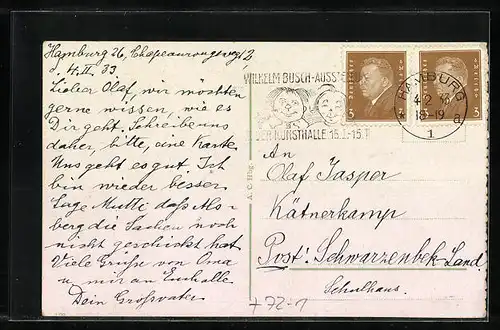 Hamburg 26, Chapeaurougeweg 2
d. 4. II. 33.
Lieber Olaf, wir möchten
gerne wissen, wie es
Dir geht. Schreibe uns
daher, bitte, eine Karte.
Uns geht es gut. Ich
bin wieder besser
Sage Mutti daß Als-
berg die Sachen noch
nicht geschickt hat
Viele Grüße von Oma
u. mir an Euch alle.
Dein Großvater
A. C. Hbg.
WILHELM BUSCH-AUSSTE
DER KUNSTHALLE 15.1.-15.
HAMBURG
18-19
1
a
5
5
An
Olaf Jasper
Kätnerkamp
Post: Schwarzenbek-Land.
Schulhaus.
+72-1